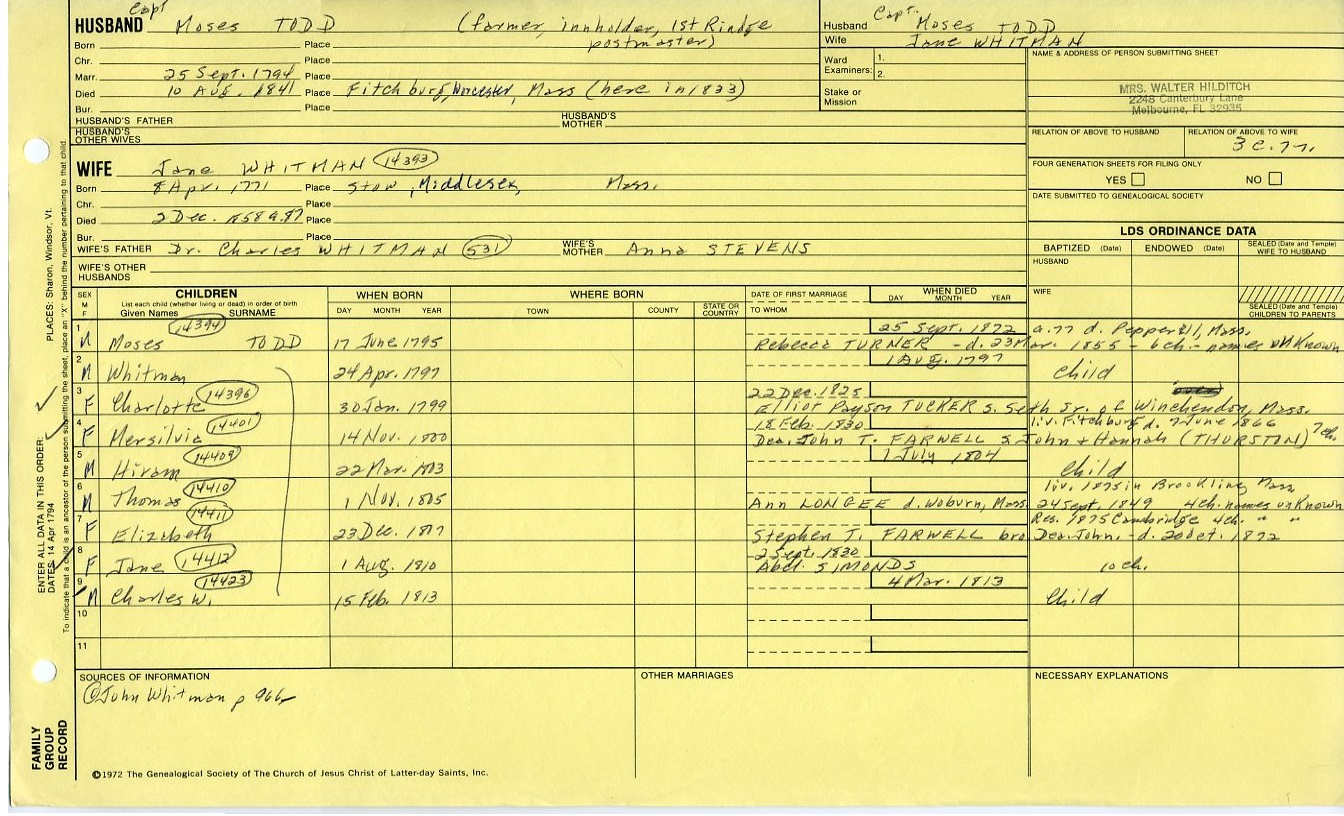 Capt
HUSBAND Moses TODD (farmer, innholder, 1st Rindge
postmaster)
Born Place
Chr. Place
Marr. 25 Sept. 1794 Place
Died 10 Aug. 1841 Place Fitchburg, Worcester, Mass (here in 1833)
Bur. Place
HUSBAND'S FATHER HUSBAND'S MOTHER
HUSBAND'S OTHER WIVES
Husband Capt. Moses TODD
Wife Jane WHITMAN
Ward Examiners: 1.
2.
Stake or Mission
NAME & ADDRESS OF PERSON SUBMITTING SHEET
MRS. WALTER HILDITCH
2248 Canterbury Lane
Melbourne, FL 32935
RELATION OF ABOVE TO HUSBAND RELATION OF ABOVE TO WIFE
3 C. 7r.
FOUR GENERATION SHEETS FOR FILING ONLY
YES NO
DATE SUBMITTED TO GENEALOGICAL SOCIETY
WIFE Jane WHITMAN 14393
Born 8 Apr. 1771 Place Stow, Middlesex, Mass.
Chr. Place
Died 2 Dec. 1858 a. 87 Place
Bur. Place
WIFE'S FATHER Dr. Charles WHITMAN 531 WIFE'S MOTHER Anna STEVENS
WIFE'S OTHER HUSBANDS
LDS ORDINANCE DATA
BAPTIZED (Date) ENDOWED (Date) SEALED (Date and Temple) WIFE TO HUSBAND
HUSBAND
WIFE
SEALED (Date and Temple) CHILDREN TO PARENTS
SEX M F CHILDREN List each child (whether living or dead) in order of birth Given Names SURNAME WHEN BORN DAY MONTH YEAR WHERE BORN TOWN COUNTY STATE OR COUNTRY DATE OF FIRST MARRIAGE TO WHOM WHEN DIED DAY MONTH YEAR
1 14394 25 Sept. 1872 a. 77 d. Pepperell, Mass.
M Moses TODD 17 June 1795 Rebecca TURNER - d. 23 Mar. 1855 - 6 ch. - names unknown
2 1 Aug. 1797
M Whitman 24 Apr. 1797 Child
3 14396 22 Dec. 1825
F Charlotte 30 Jan. 1799 Elliot Payson TUCKER s. Seth Jr. of Winchendon, Mass.
4 14401 18 Feb. 1830 liv. Fitchburg d. 7 June 1866
F Mersilvia 14 Nov. 1800 Dea. John T. FARWELL s. John + Hannah (THURSTON) 7 ch.
5 14409 1 July 1804
M Hiram 22 Mar. 1803 Child
6 14410 liv. 1875 in Brookline, Mass
M Thomas 1 Nov. 1805 Ann LONGEE d. Woburn, Mass. 24 Sept. 1849 4 ch. names unknown
7 14411 Res. 1875 Cambridge 4 ch. " "
F Elizabeth 23 Dec. 1807 Stephen T. FARWELL bro Dea. John. - d. 20 Oct. 1872
8 14412 2 Sept. 1830
F Jane 1 Aug. 1810 Abel SIMONDS 10 ch.
9 14423 4 Mar. 1813
M Charles W. 15 Feb. 1813 Child
10
11
SOURCES OF INFORMATION
John Whitman p 966
OTHER MARRIAGES
NECESSARY EXPLANATIONS
©1972 The Genealogical Society of The Church of Jesus Christ of Latter-day Saints, Inc.
FAMILY GROUP RECORD
ENTER ALL DATA IN THIS ORDER:
DATES: 14 Apr 1794
PLACES: Sharon, Windsor, Vt.
To indicate that a child is an ancestor of the person submitting the sheet, place an "X" behind the number pertaining to that child.